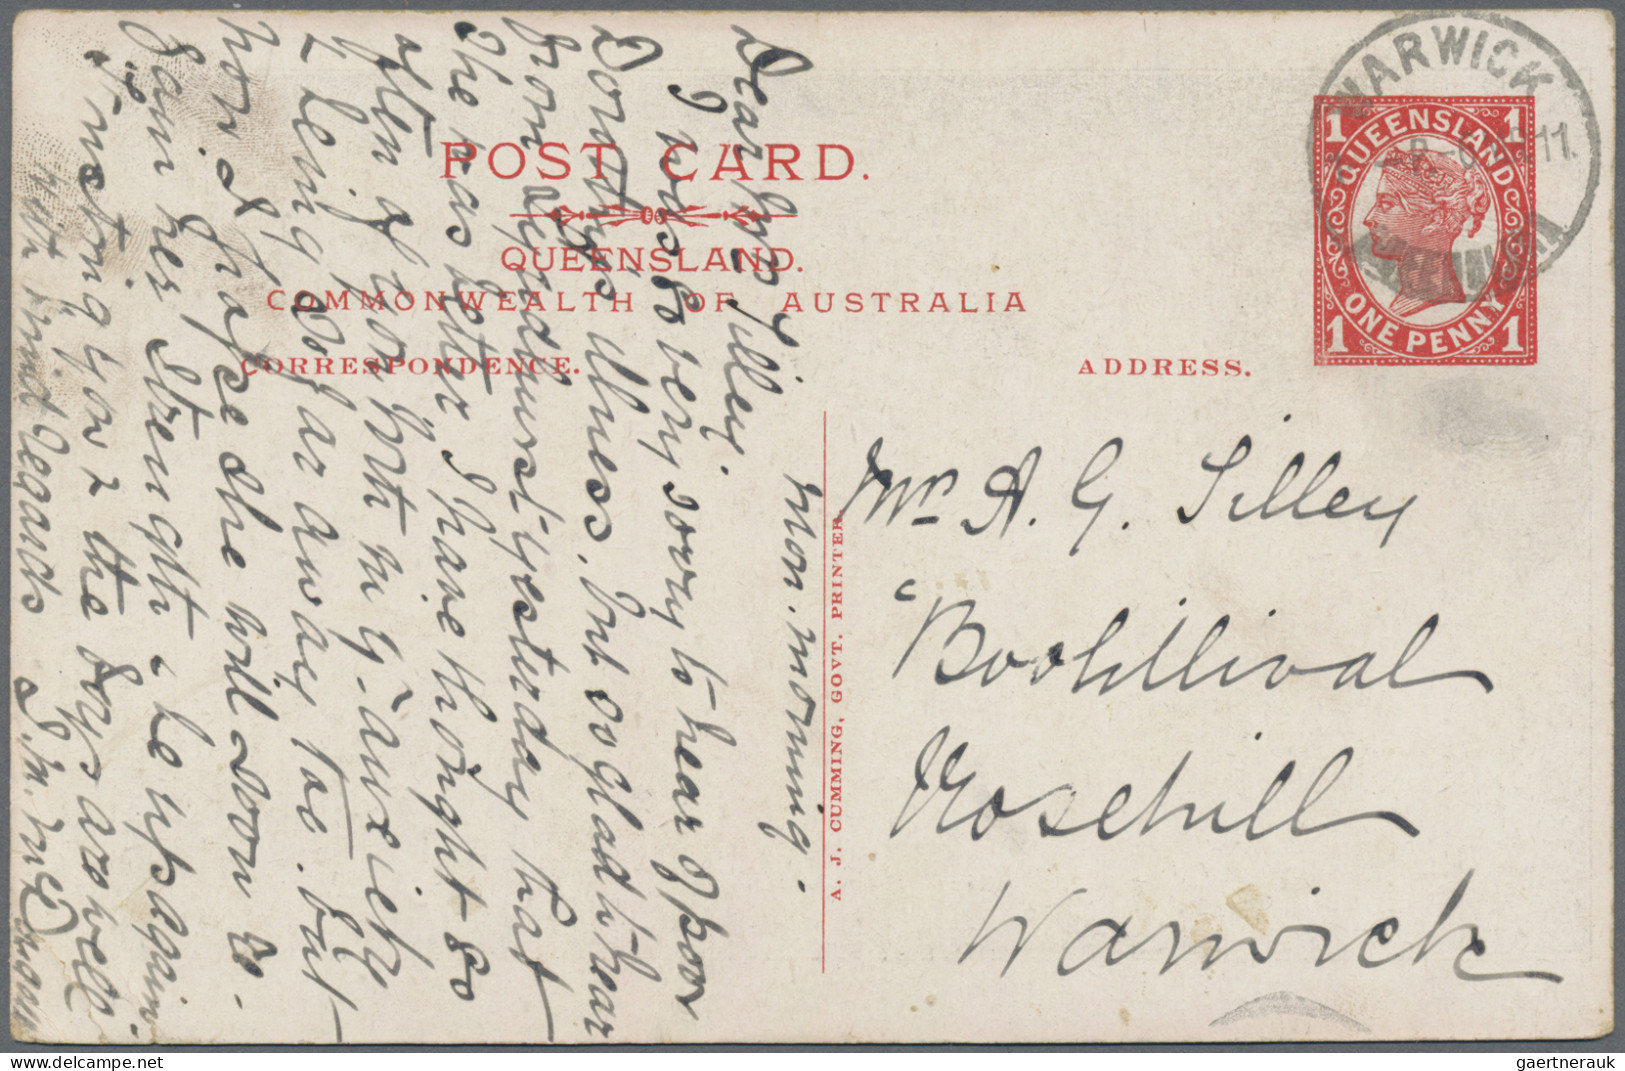 WARWICK
11.
QUEENSLAND
1 1
ONE PENNY
1 1
POST CARD.
QUEENSLAND.
COMMONWEALTH OF AUSTRALIA
CORRESPONDENCE.
ADDRESS.
Mrs A. G. Silley
Rosehill
Warwick
A. J. CUMMING, GOVT. PRINTER.
Mon. morning.
Dear Mrs Silley.
I was so very sorry to hear of poor
Dorothy's illness, but so glad to hear
from yesterday that
she was better, I have thought so
often of you both in yr anxiety
& being so far away too. but
now I hope she will soon re-
gain her strength & be up again
Trusting you & the boys are well.
with kind regards
gaertnerauk